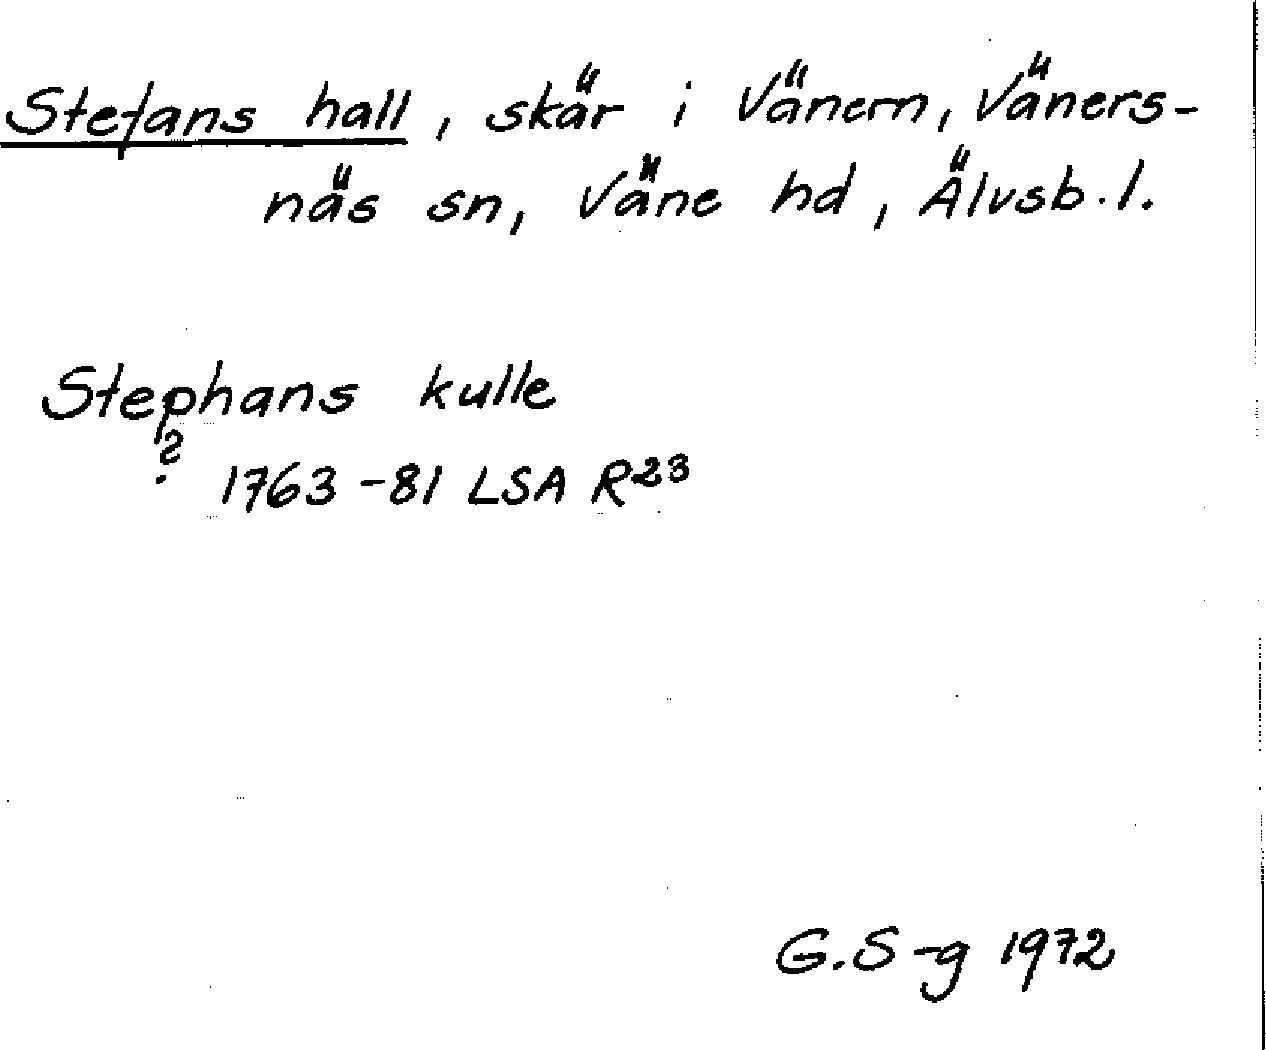 Stefans hall, skär i Vänern, Väners-
näs sn, Väne hd, Älvsb. l.
Stephans kulle
? 1763-81 LSA R23
G.S-g 1972